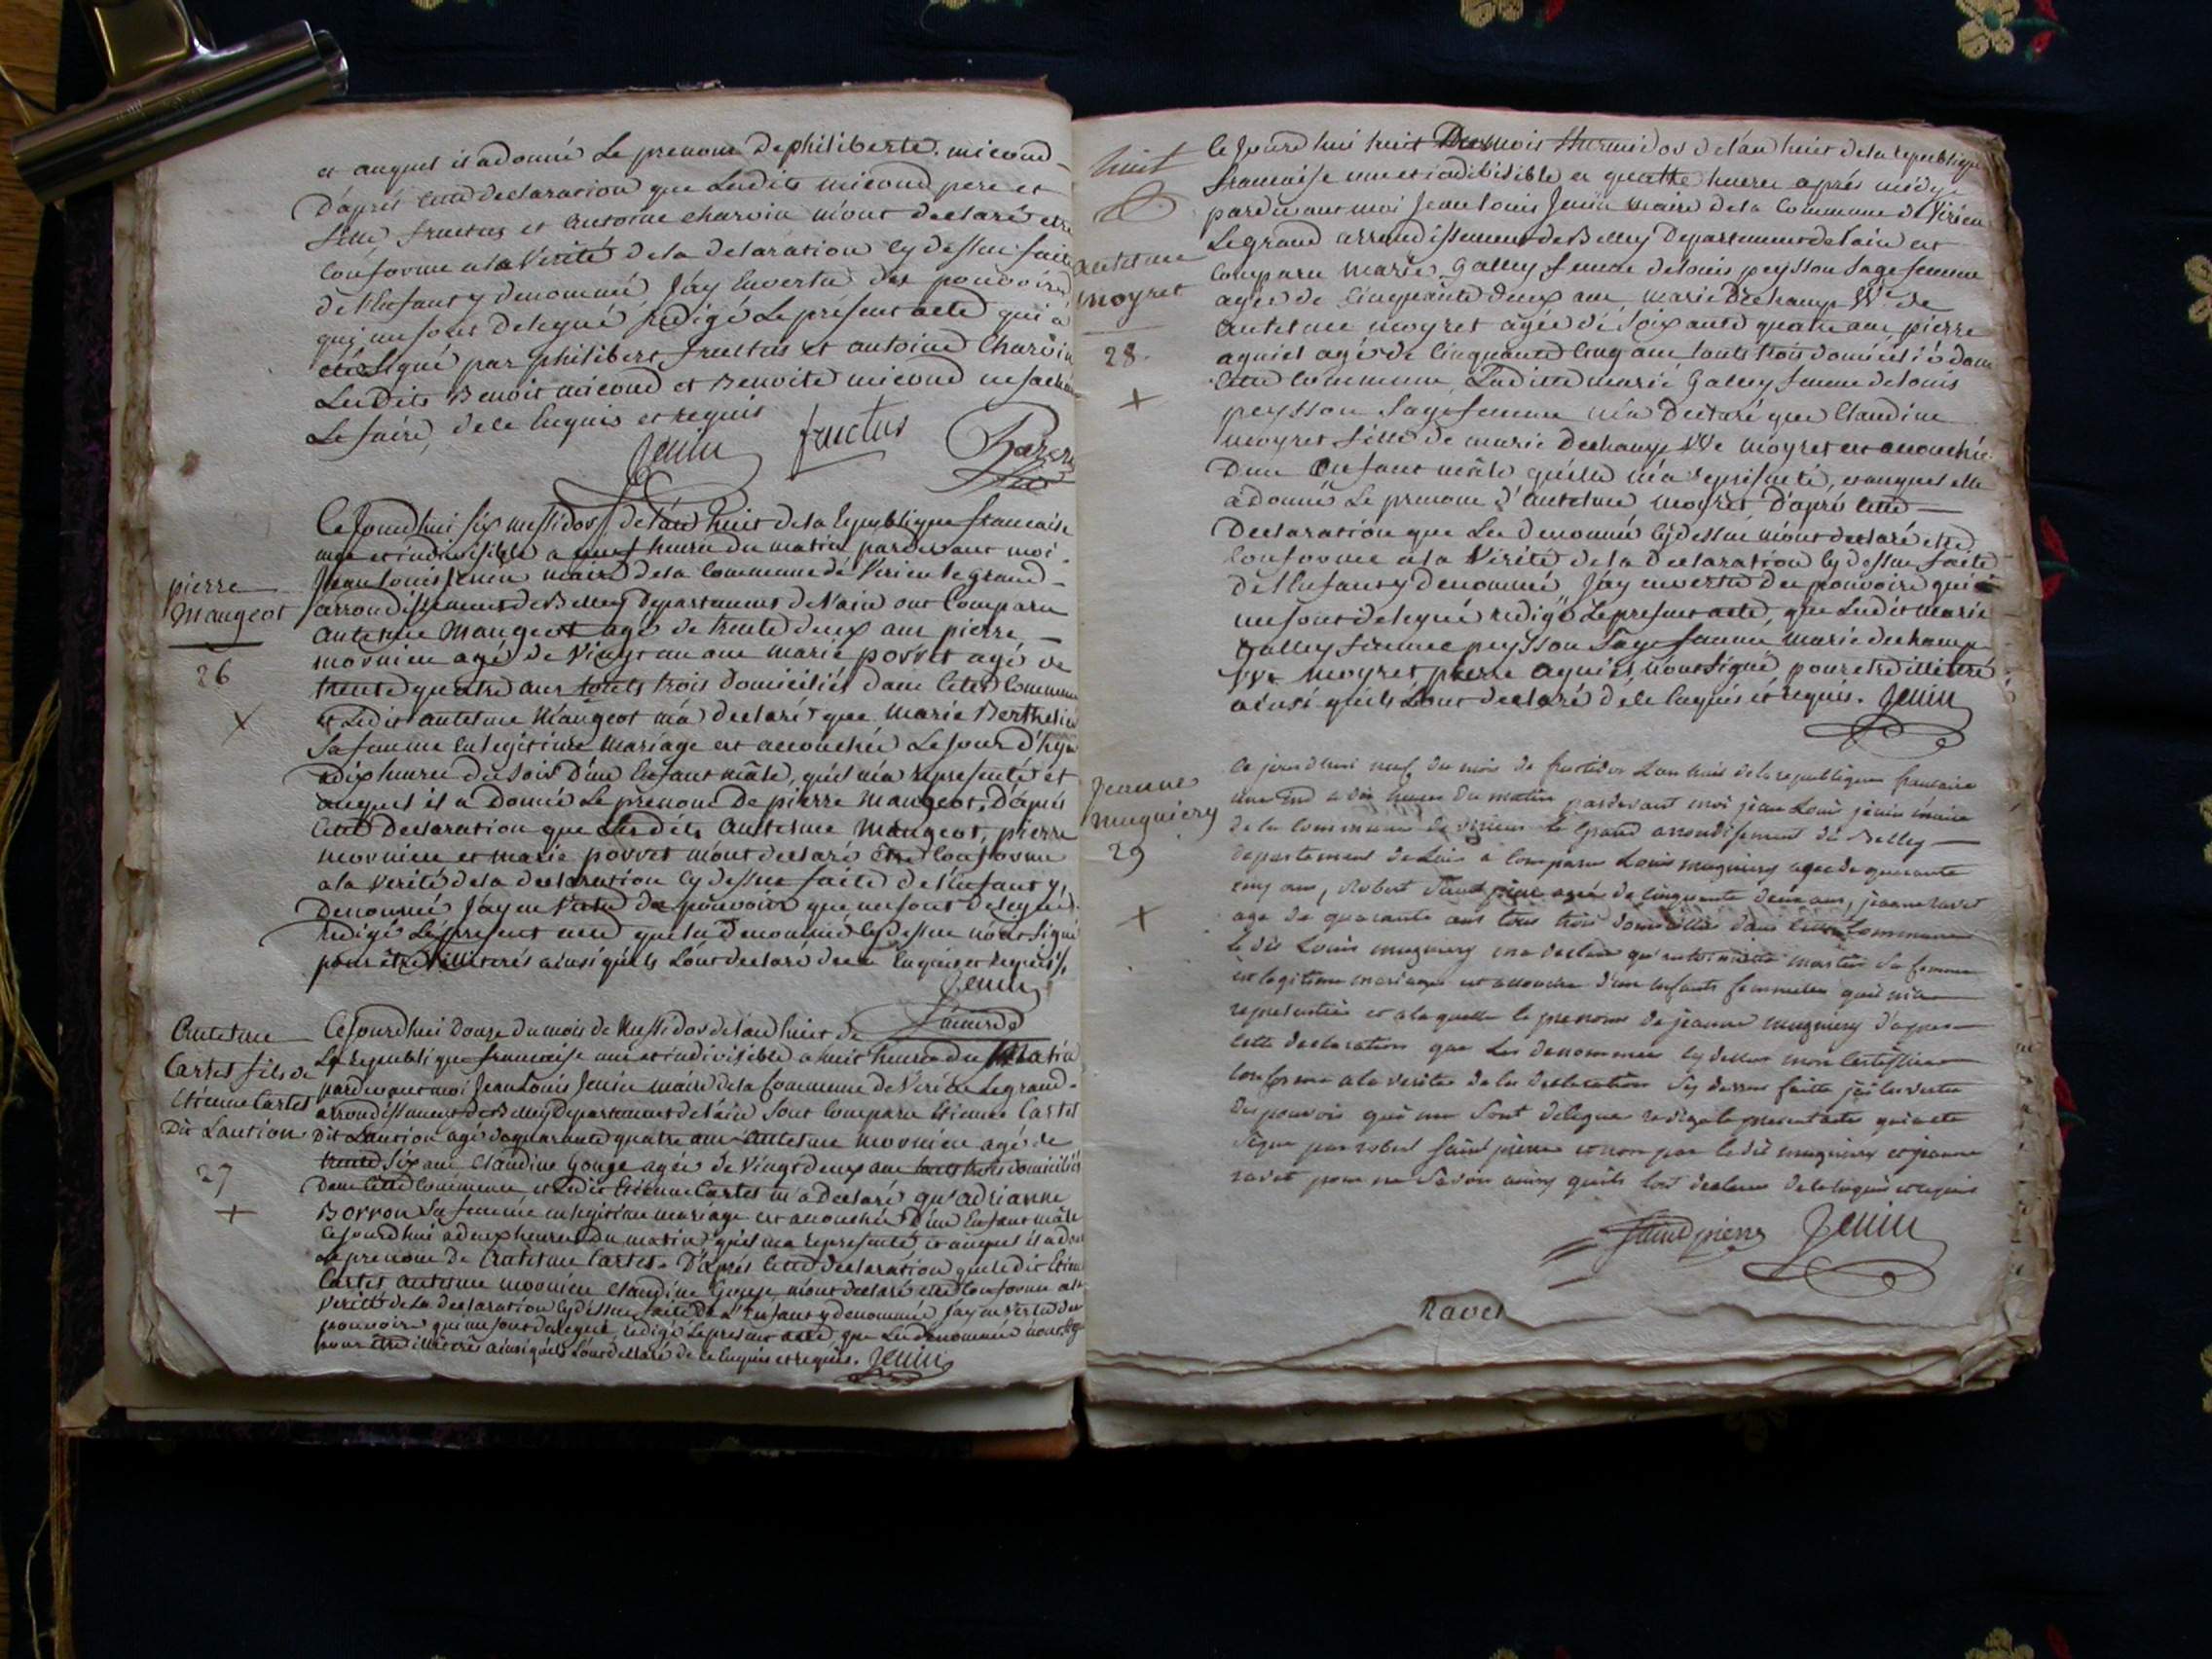 et auquel il a donné Le prenom de philiberte. micoud
D'aprés cette declaration que Ledits micoud pere et
fille fructus et antoine charvin m'ont declaré etre
Conforme a la Verité de la declaration cy dessus faite
de l'Enfant y denommé J'ay Envertu des pouvoirs
qui me sont delegué redigé Le présent acte qui a
été Signé par philibert fructus et antoine Charvin
Lesdits Benoit micoud et Benoite micoud ne sachant
Le faire, de ce Enquis et requis
Jenin fructus
Cejourdhui six messidor de l'an huit de la republique francaise
une et indivisible a neuf heures du matin pardevant moi
Jean Louis Jenin maire de la Commune de Virieu le grand
pierre
Mangeot
arrondissement de Belley Departement de l'ain ont Comparu
antelme Mangeot agé de trente deux ans pierre
26
mornieu agé de Vingt un ans marie porret agé de
trente quatre ans touts trois domiciliés dans Cette Commune
et Ledit antelme Mangeot m'a declaré que Marie Berthelie
Sa femme En legitime Mariage est accouchée Le jour d'hyer
a dix heures du soir D'un Enfant mâle, qu'il m'a representé et
auquel il a donné Le prenom De pierre Mangeot. D'aprés
Cette Declaration que Lesdits Antelme Mangeot, pierre
mornieu et marie porret m'ont declaré être Conforme
a la Verité de la declaration cy dessus faite de l'Enfant y
Denommé J'ay en Vertu des pouvoirs que me sont delegués
redigé Le present acte que les Denommé cy Dessus n'ont signé
pour être illiterés ainsi qu'ils L'ont declaré de ce Enquis et Requis
Jenin
Antelme
Cartet fils de
Etienne Cartet
Dit Laution
27
Cejourdhui Douze du mois de Messidor de l'an huit de
La republique francoise une et indivisible a huit heures du Matin
pardevant moi Jean Louis Jenin maire de la Commune de Virieu Le grand
arrondissement de Belley Departement de l'ain Sont Comparu Etienne Cartet
Dit Laution agé de quarante quatre ans Antelme mornieu agé de
trente six ans Claudine Gonge agée de Vingt deux ans touts trois domiciliés
Dans Cette Commune, et Ledit Etienne Cartet m'a Declaré qu'adrianne
Borron Sa femme en legitime mariage est accouchée D'un Enfant mâle
Cejourdhui a deux heures du matin qu'il ma representé et auquel il a donné
Le prenom de Antelme Cartet. D'aprés Cette declaration que le dit Etienne
Cartet Antelme mornieu Claudine Gonge, m'ont declaré etre Conforme a la
Verité de La declaration cy dessus faite De l'Enfant y denommé J'ay en Vertu des
pouvoirs qui me sont delegué redigé Le present acte que Les denommé n'ont signé
pour être illiterés ainsi qu'ils L'ont declaré de ce Enquis et requis. Jenin
huit
Antelme
moyret
28
Cejourdhui huit Du mois thermidor de l'an huit de la republique
francaise une et indivisible a quatre heures aprés midy
pardevant moi Jean Louis Jenin maire de la Commune de Virieu
Le grand arrondissement de Belley Departement de l'ain est
Comparu Marie Galley femme de Louis peysson Sage femme
agée de Cinquante deux ans marie Dechamp Ve de
antelme moyret agée de Soixante quatre ans pierre
aguiet agé de Cinquante Cinq ans touts trois domiciliés dans
Cette Commune, Ladite marie Galley femme de Louis
peysson Sage femme m'a Declaré que Claudine
moyret fille de marie dechamp Vve moyret est accouchée
D'un Enfant mâle qu'elle m'a representé, et auquel elle
a donné Le prenom d'Antelme moyret D'aprés Cette
Declaration que Les denommé cy dessus m'ont declaré etre
Conforme a la Vérité de la Declaration cy dessus faite
De l'Enfant y denommé J'ay en vertu des pouvoirs qui
me sont delegué redigé Le present acte, que Ledit Marie
Galley femme peysson Sage femme marie dechamp
Vve moyret pierre aguiet, n'ont Signé pour etre illitéré
ainsi qu'ils L'ont declaré de ce Enquis et requis. Jenin
Jeanne
Mugniery
29
Ce jourdhui neuf du mois de fructidor L'an huit de la republique francaise
une Ind a dix heures du matin pardevant moi jean Louis jenin maire
de la Commune de virieu le grand arrondissement de Belley
departement de Lain a Comparu Louis mugniery agee de quarante
cinq ans, Robert Saint pierre agée de cinquante deux ans, jeanne ravet
age de quarante ans tous trois domicillies dans cette Commune
le dit Louis mugniery ma declaré qu'antoinette martin Sa femme
en legitime mariage est accouchée d'un enfants femmelle quil ma
representée et a la quelle le prenom de jeanne mugniery d'apres
cette declaration que Les denommee cy dessus mon certiffier
Conforme a la verité de la declaration cy dessus faitte jai en vertu
des pouvoir qui me Sont delegue redige le present acte qui a ete
Signe par robert Saint pierre et non par le dit mugniery et jeanne
ravet pour ne Savoir ainsy quils lont declaree de ce enquis et requis
Saint pierre Jenin
Ravet